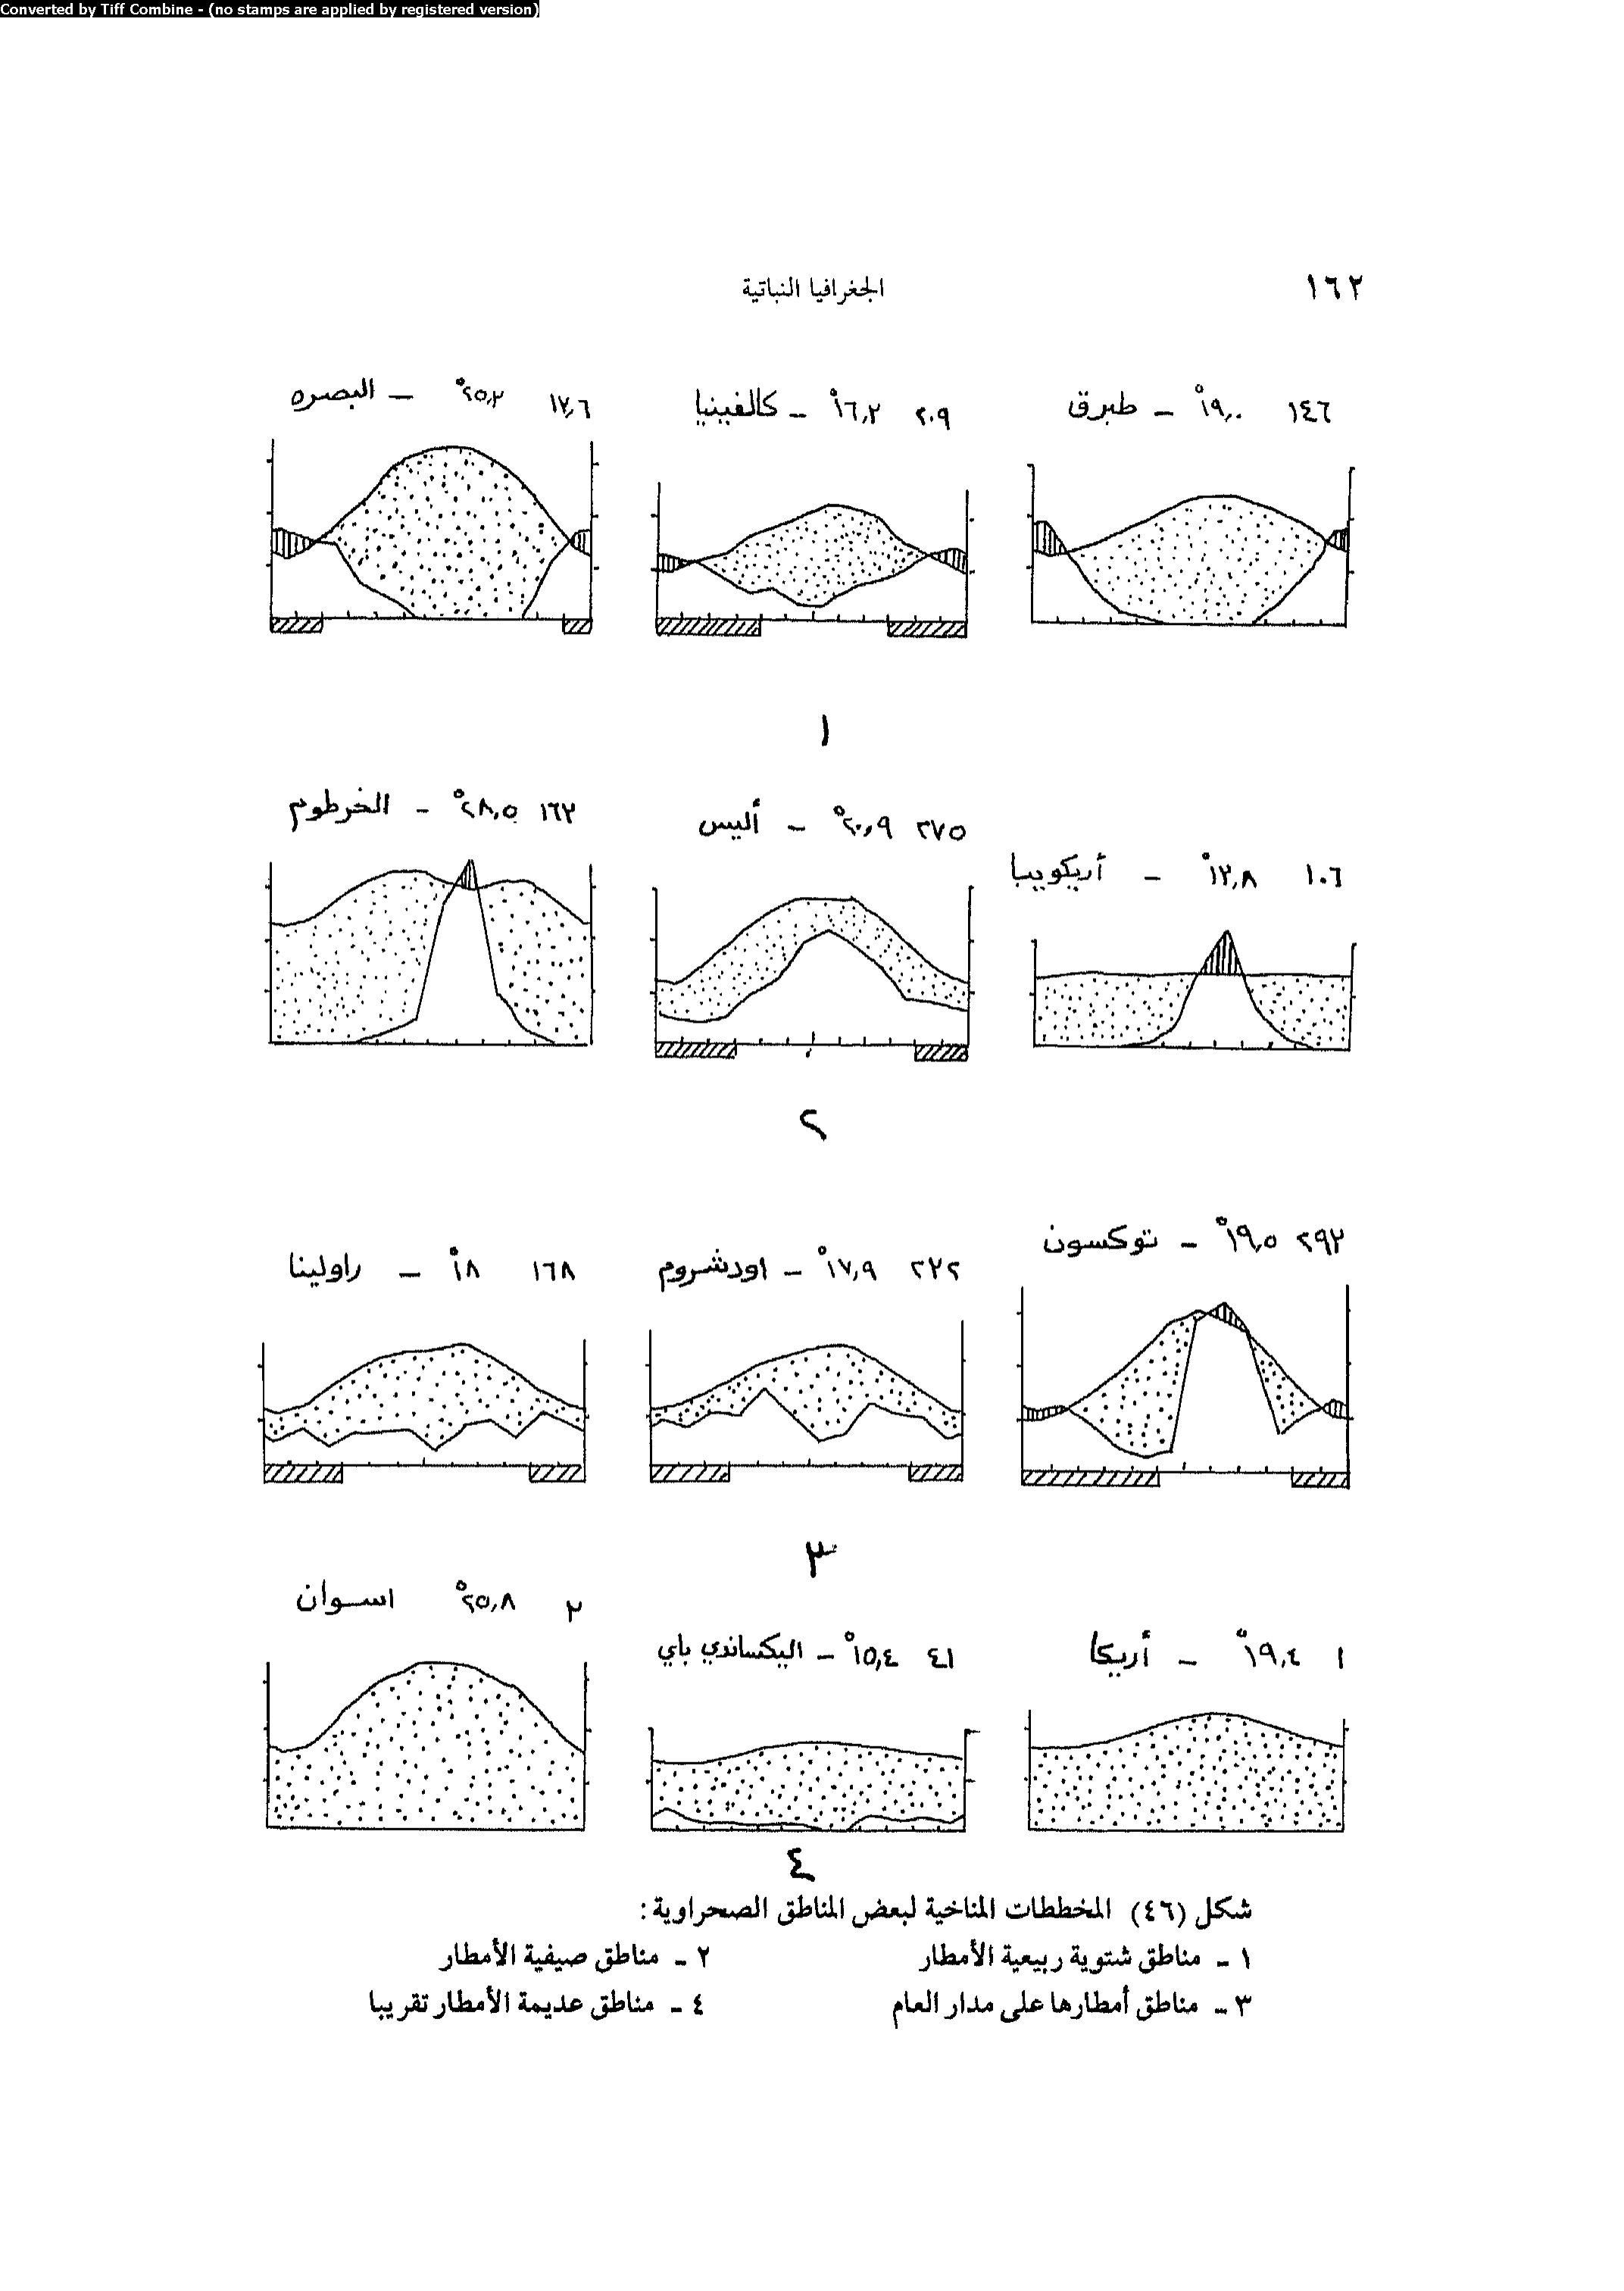 Converted by Tiff Combine - (no stamps are applied by registered version)
١٦٢
الجغرافيا النباتية
طبرق – ١٩٫٠° ١٤٦
كالفينيا – ١٦٫٢° ٢٠٩
البصره – ٢٥٫٢° ١٧٫٦
١
أريكويبا – ١٣٫٨° ١٠٦
أليس – ٢٠٫٩° ٢٧٥
الخرطوم – ٢٨٫٥° ١٦٣
٢
توكسون – ١٩٫٥° ٢٩٢
اودشروم – ١٧٫٩° ٢٢٢
راولينا – ١٨° ١٦٨
٣
أريكا – ١٩٫٤° ١
اليكساندي باي – ١٥٫٤° ٤١
اسوان ٢٥٫٨° ٢
٤
شكل (٤٦) المخططات المناخية لبعض المناطق الصحراوية :
١ – مناطق شتوية ربيعية الأمطار ٢ – مناطق صيفية الأمطار
٣ – مناطق أمطارها على مدار العام ٤ – مناطق عديمة الأمطار تقريبا